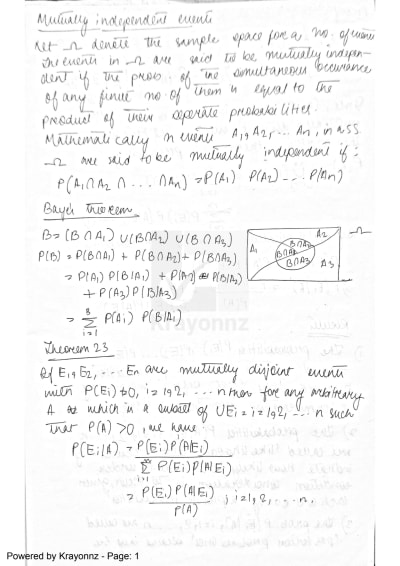 Mutually independent events
Let Ω denote the sample space for a no. of events
The events in Ω are said to be mutually indepen-
dent if the prob. of the simultaneous occurance
of any finite no. of them is equal to the
product of their seperate probabilities.
Mathematically n events A1, A2, ... An, in a SS
Ω are said to be mutually independent if :
P(A1 ∩ A2 ∩ ... ∩ An) = P(A1) P(A2) ... P(An)
Baye's theorem
B = (B ∩ A1) ∪ (B ∩ A2) ∪ (B ∩ A3)
P(B) = P(B ∩ A1) + P(B ∩ A2) + P(B ∩ A3)
= P(A1) P(B|A1) + P(A2) P(B|A2)
+ P(A3) P(B|A3)
= 3 Σ i=1 P(Ai) P(B|Ai)
A1 A2 A3 Ω
B∩A1
B∩A2
B∩A3
Krayonnz
Theorem 23
If E1, E2, ... En are mutually disjoint events
with P(Ei) ≠ 0, i = 1, 2, ... n then for any arbitrary
A which is a subset of ∪Ei = i = 1, 2, ... n such
that P(A) > 0, we have
P(Ei|A) = P(Ei) P(A|Ei)
Σ i=1 P(Ei) P(A|Ei)
= P(Ei) P(A|Ei) ; i = 1, 2, ... n.
P(A)
Powered by Krayonnz - Page: 1